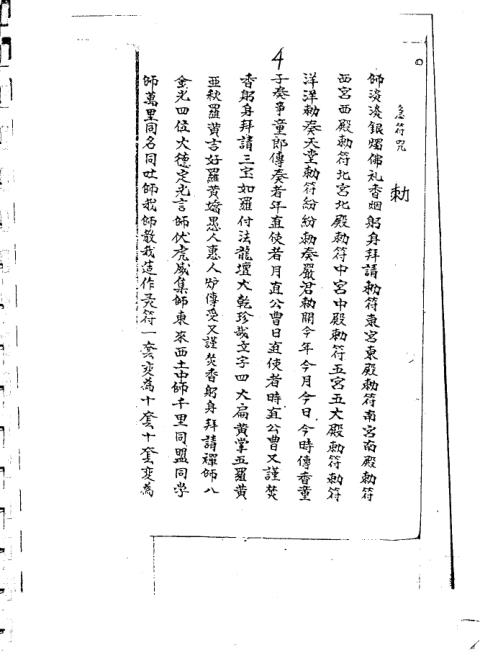 急符咒
勅
師淡淡銀燭佛礼香烟躬身拜請勅符東宮東殿勅符南宮南殿勅符
西宮西殿勅符北宮北殿勅符中宮中殿勅符五宮五大殿勅符勅符
洋洋勅奏天堂勅符紛紛勅奏嚴君勅開今年今月今日今時傳香童
4
子奏事童郎傳奏者年直使者月直公曹日直使者時直公曹又謹焚
香躬身拜請三宝如羅付法龍壇大乾珍哉立字四大扁黄掌五羅黄
亞秋羅黄言好羅黄嬌愚人惠人妙傳受又謹焚香躬身拜請禪師八
金光四位大德定光言師伏虎威集師東來西土中師千里同盟同学
師萬里同名同吐師我師教我造作灵符一套変萬十套十套変萬